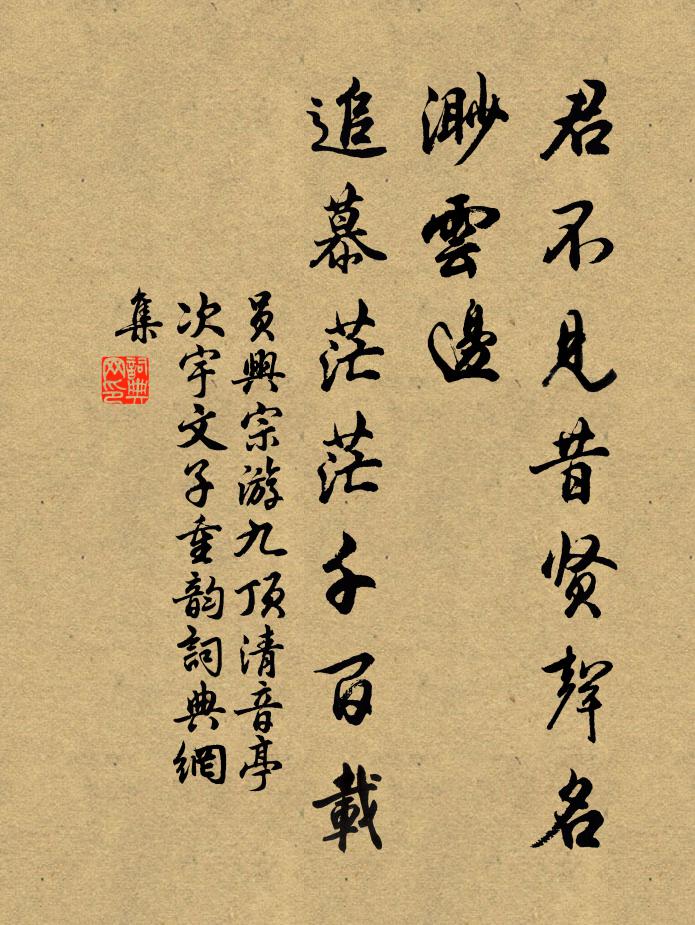 君不見昔贤聲名
渺雲邊
追慕茫茫千百載
員興宗游九顶清音亭
次宇文子重韵詞典網
集
詞典
网印